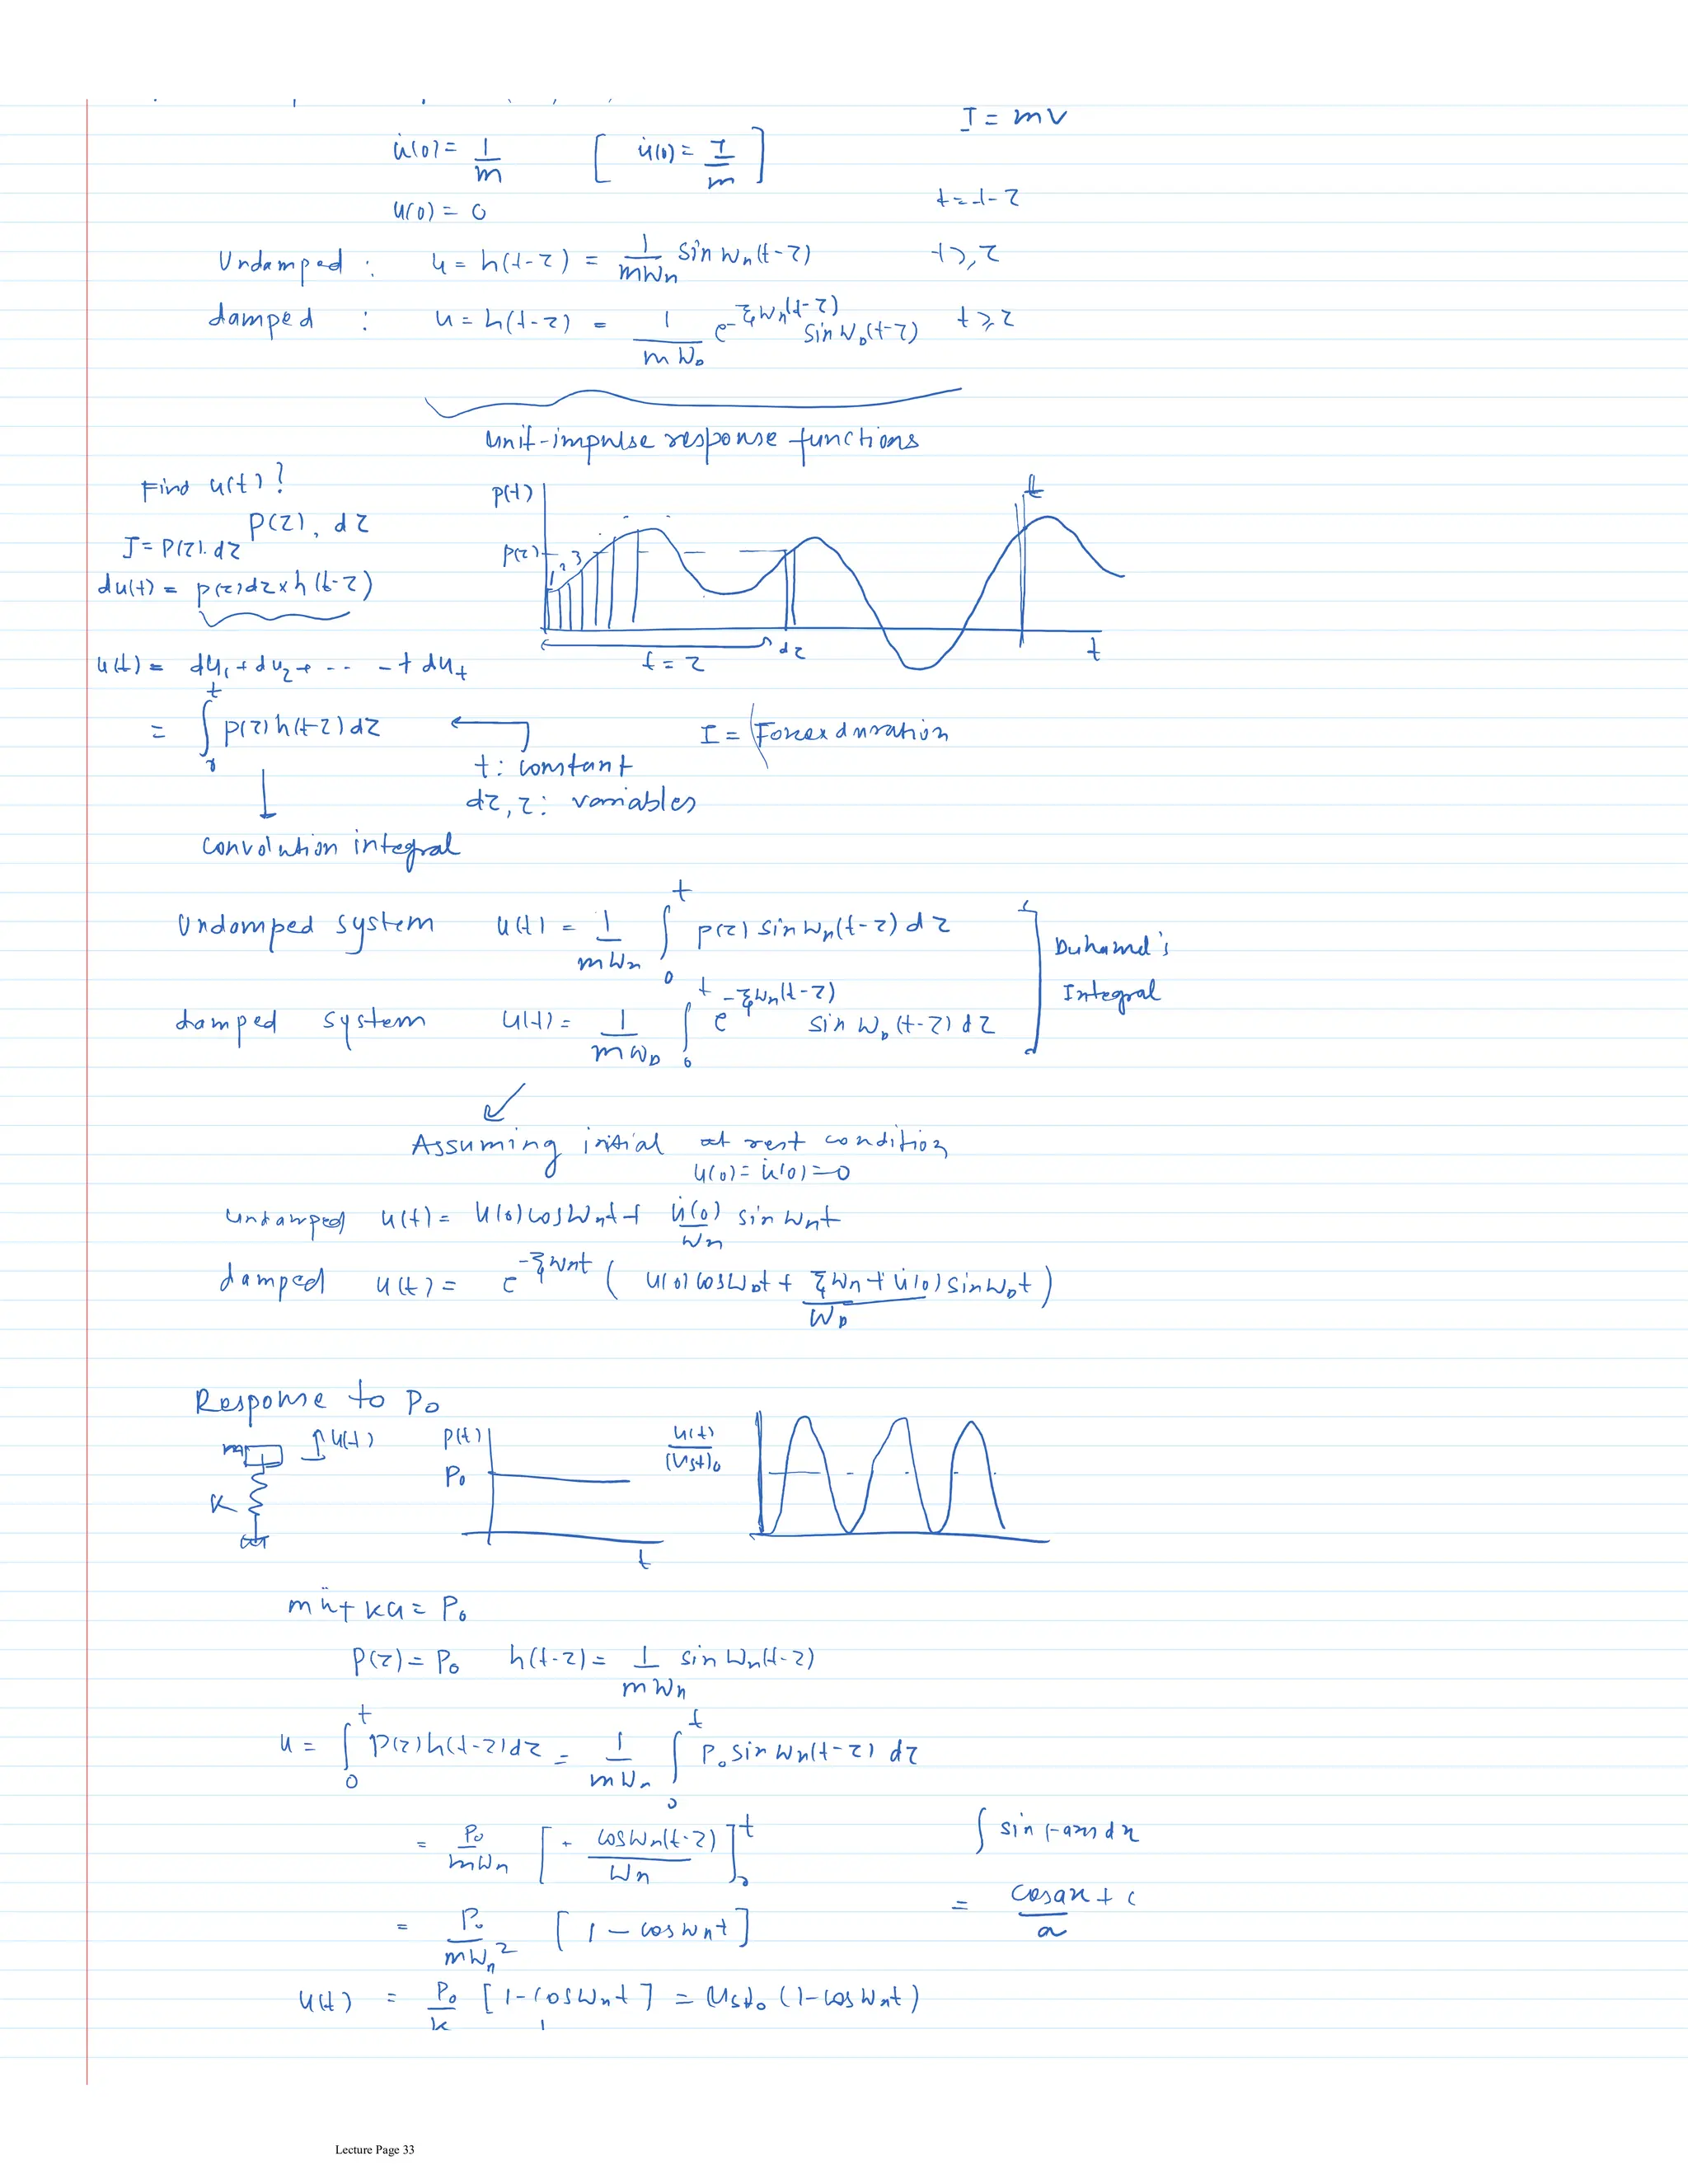 I = mv
u̇(0) = 1/m [ u̇(0) = I/m ]
t = t-τ
u(0) = 0
Undamped : u = h(t-τ) = 1/mωn sin ωn(t-τ) t ≥ τ
damped : u = h(t-τ) = 1/mωD e^-ξωn(t-τ) sin ωD(t-τ) t ≥ τ
unit-impulse response functions
Find u(t) ?
P(τ), dτ
I = P(τ). dτ
du(t) = p(τ)dτ x h(t-τ)
p(t)
p(τ)
1 2 3
t
t = τ
dτ
t
u(t) = du1 + du2 + -- - + dut
= ∫0^t p(τ)h(t-τ)dτ
I = Force x duration
t : constant
dτ, τ : variables
Convolution integral
Undamped system u(t) = 1/mωn ∫0^t p(τ) sin ωn(t-τ) dτ
damped system u(t) = 1/mωD ∫0^t e^-ξωn(t-τ) sin ωD(t-τ) dτ
Duhamel's
Integral
Assuming initial at rest condition
u(0) = u̇(0) = 0
undamped u(t) = u(0) cos ωnt + u̇(0)/ωn sin ωnt
damped u(t) = e^-ξωnt ( u(0) cos ωDt + ξωn + u̇(0)/ωD sin ωDt )
Response to P0
m
u(t)
K
p(t)
P0
t
u(t)/(Ust)0
mü + ku = P0
P(τ) = P0 h(t-τ) = 1/mωn sin ωn(t-τ)
u = ∫0^t P(τ)h(t-τ)dτ = 1/mωn ∫0^t P0 sin ωn(t-τ) dτ
= P0/mωn [ + cos ωn(t-τ)/ωn ]0^t
∫ sin(-ax) dx
= P0/mωn² [ 1 - cos ωnt ]
= cos ax/a + c
u(t) = P0/k [1 - cos ωnt ] = (Ust)0 (1 - cos ωnt)
Lecture Page 33